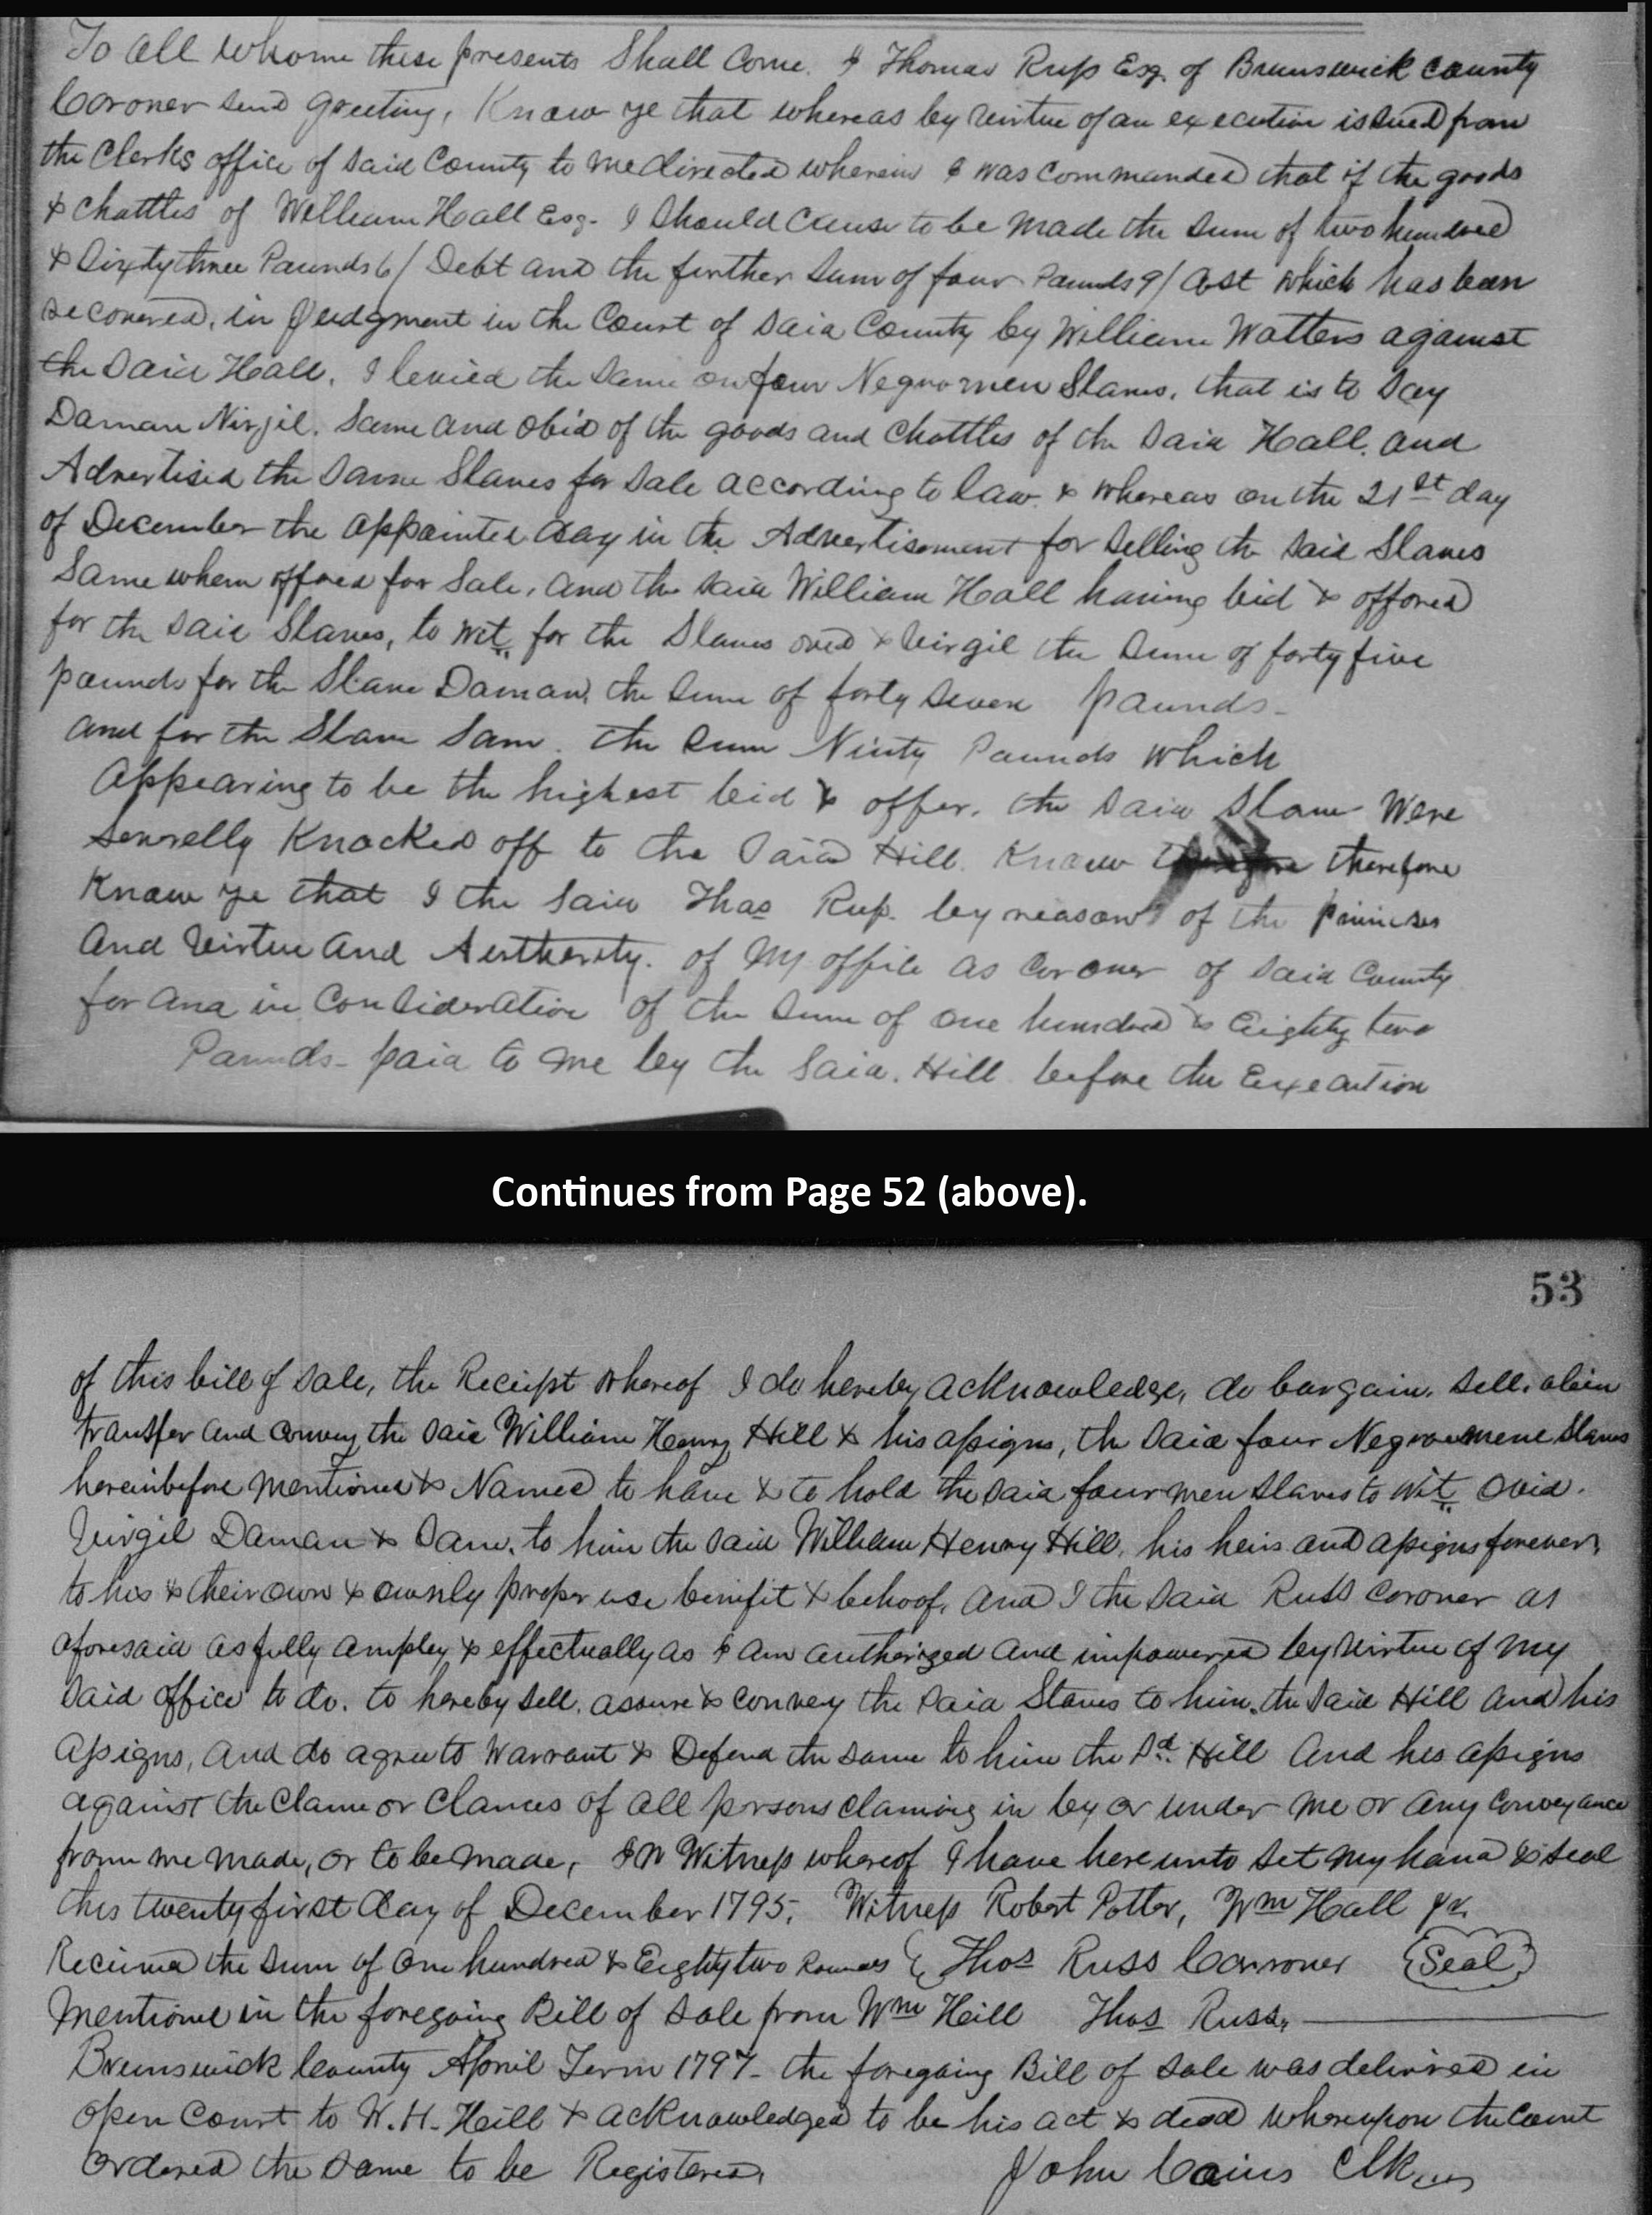 To all whome these presents Shall Come. I Thomas Russ Esq. of Brunswick County
Coroner send greeting, Know ye that whereas by virtue of an execution issued from
the Clerks office of said County to me directed wherein I was Commanded that if the goods
& Chattles of William Hall Esq. I should cause to be made the sum of two hundred
& Sixty three Pounds 6/ Debt and the further sum of four Pounds 9/ Cost which has been
recovered, in Judgment in the Court of said County by William Watters against
the said Hall. I levied the same on four Negro men Slaves, that is to say
Daman Virjil. Same and Obid of the goods and Chattles of the said Hall. and
Advertised the same Slaves for sale according to law. & whereas on the 21st day
of December the appointed day in the Advertisement for selling the said Slaves
Same when offred for sale, and the said William Hall having bid & offored
for the said Slaves, to wit for the Slaves Ovid & Virgil the sum of forty five
pounds for the Slave Daman, the sum of forty seven pounds -
and for the Slave Sam. the sum Ninty Pounds which
Appearing to be the highest bid & offer. the said Slave Were
severelly Knocked off to the said Hill. Know therefore
Know ye that I the said Thos Russ. by reason of the primises
And Virtue and Authority. of my office as Coroner of said County
for and in Consideration of the sum of one hundred & Eighty two
Pounds - paid to me by the said. Hill before the Execution
Continues from Page 52 (above).
53
of this bill of sale, the Receipt whereof I do hereby acknowledge, do bargain. sell. alein
transfer and convey the said William Henry Hill & his assigns, the said four Negro mene Slaves
hereinbefore mentioned & Named to have & to hold the said four men slaves to wit Ovid.
Virgil Daman & Sam. to him the said William Henry Hill, his heirs and assigns forever,
to his & their own & ownly proper use benifit & behoof. And I the said Russ Coroner as
aforesaid as fully ampley & effectually as I am authorized and impowered by virtue of my
said office to do. to hereby sell. assure & convey the said Slaves to him, the said Hill and his
assigns, and do agree to Warrant & Defend the same to him the sd. Hill And his assigns
against the Clame or Clames of all persons claming in by or under me or any conveyance
from me made, or to be made, In Witness whereof I have hereunto set my hand & seal
this twenty first day of December 1795. Witness Robert Potter, Wm Hall Jr.
Received the sum of one hundred & Eighty two Pounds { Thos Russ Corroner (Seal)
mentioned in the foregoing Bill of Sale from Wm Hill Thos Russ.
Brunswick County April Term 1797 - the foregoing Bill of Sale was delivired in
open Court to W. H. Hill & acknowledged to be his act & deed whereupon the Court
ordered the same to be Registered,
John Cains Clk